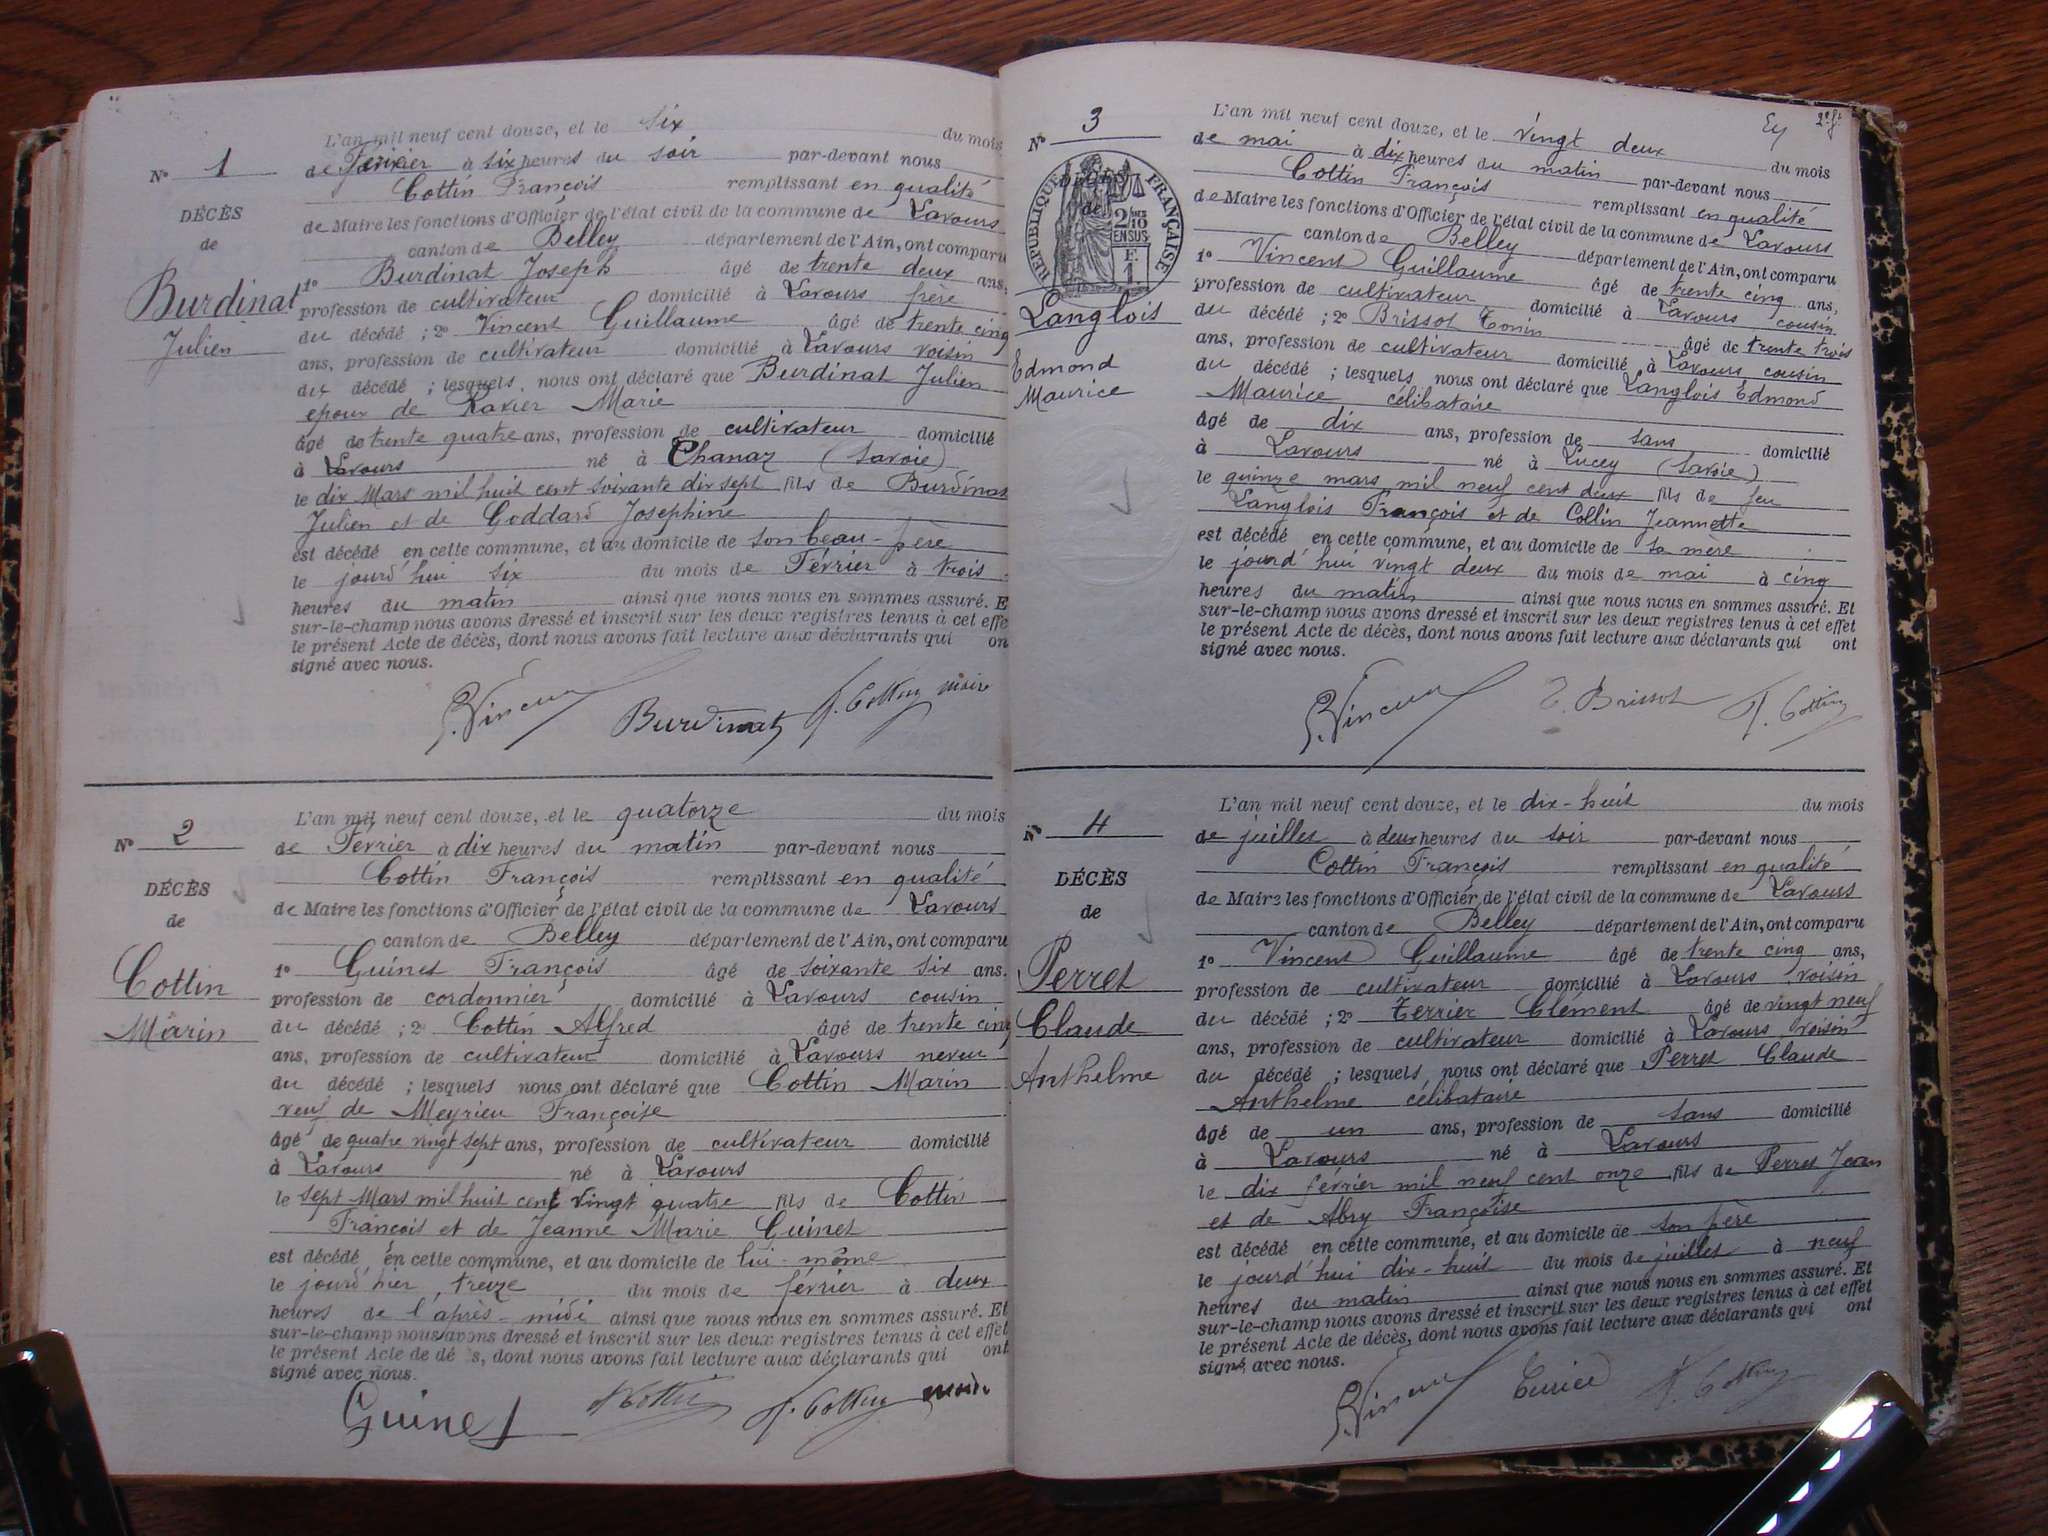 L'an mil neuf cent douze, et le six du mois
N° 1
de Février à six heures du soir par-devant nous
Cottin François remplissant en qualité
DÉCÈS
de
Burdinat
Julien
de Maire les fonctions d'Officier de l'état civil de la commune de Lavours
canton de Belley département de l'Ain, ont comparu
1° Burdinat Joseph âgé de trente deux ans,
profession de cultivateur domicilié à Lavours frère
du décédé ; 2° Vincent Guillaume âgé de trente cinq
ans, profession de cultivateur domicilié à Lavours voisin
du décédé ; lesquels nous ont déclaré que Burdinat Julien
epoux de Ravier Marie
âgé de trente quatre ans, profession de cultivateur domicilié
à Lavours né à Chanaz (Savoie)
le dix Mars mil huit cent soixante dix sept fils de Burdinat
Julien et de Goddard Josephine
est décédé en cette commune, et au domicile de son beau-père
le jourd'hui six du mois de Février à trois
heures du matin ainsi que nous nous en sommes assuré. E
sur-le-champ nous avons dressé et inscrit sur les deux registres tenus à cet effe
le présent Acte de décès, dont nous avons fait lecture aux déclarants qui on
signé avec nous.
G. Vincent Burdinat F. Cottin maire
L'an mil neuf cent douze, et le quatorze du mois
N° 2
de Février à dix heures du matin par-devant nous
Cottin François remplissant en qualité
DÉCÈS
de
Cottin
Marin
de Maire les fonctions d'Officier de l'état civil de la commune de Lavours
canton de Belley département de l'Ain, ont comparu
1° Guinet François âgé de soixante six ans.
profession de cordonnier domicilié à Lavours cousin
du décédé ; 2° Cottin Alfred âgé de trente cinq
ans, profession de cultivateur domicilié à Lavours neveu
du décédé ; lesquels nous ont déclaré que Cottin Marin
veuf de Meyrieu Françoise
âgé de quatre vingt sept ans, profession de cultivateur domicilié
à Lavours né à Lavours
le sept Mars mil huit cent vingt quatre fils de Cottin
François et de Jeanne Marie Guinet
est décédé en cette commune, et au domicile de lui-même
le jourd'hier treize du mois de février à deux
heures de l'après-midi ainsi que nous nous en sommes assuré. Et
sur-le-champ nous avons dressé et inscrit sur les deux registres tenus à cet effet
le présent Acte de dé s, dont nous avons fait lecture aux déclarants qui ont
signé avec nous.
Guinet A Cottin F. Cottin maire
2e f.
L'an mil neuf cent douze, et le vingt deux du mois
N° 3
de mai à dix heures du matin par-devant nous
Cottin François remplissant en qualité
DÉCÈS
de
RÉPUBLIQUE FRANÇAISE
2/10 EN SUS
F. 1
Langlois
Edmond
Maurice
de Maire les fonctions d'Officier de l'état civil de la commune de Lavours
canton de Belley département de l'Ain, ont comparu
1° Vincent Guillaume âgé de trente cinq ans,
profession de cultivateur domicilié à Lavours cousin
du décédé ; 2° Brissot Tonin âgé de trente trois
ans, profession de cultivateur domicilié à Lavours cousin
du décédé ; lesquels nous ont déclaré que Langlois Edmond
Maurice célibataire
âgé de dix ans, profession de sans domicilié
à Lavours né à Lucey (Savoie)
le quinze mars mil neuf cent deux fils de feu
Langlois François et de Collin Jeannette
est décédé en cette commune, et au domicile de sa mère
le jourd'hui vingt deux du mois de mai à cinq
heures du matin ainsi que nous nous en sommes assuré. Et
sur-le-champ nous avons dressé et inscrit sur les deux registres tenus à cet effet
le présent Acte de décès, dont nous avons fait lecture aux déclarants qui ont
signé avec nous.
G. Vincent T. Brissot F. Cottin
L'an mil neuf cent douze, et le dix-huit du mois
N° 4
de juillet à deux heures du soir par-devant nous
Cottin François remplissant en qualité
DÉCÈS
de
Perret
Claude
Anthelme
de Maire les fonctions d'Officier de l'état civil de la commune de Lavours
canton de Belley département de l'Ain, ont comparu
1° Vincent Guillaume âgé de trente cinq ans,
profession de cultivateur domicilié à Lavours voisin
du décédé ; 2° Terrier Clément âgé de vingt neuf
ans, profession de cultivateur domicilié à Lavours voisin
du décédé ; lesquels nous ont déclaré que Perret Claude
Anthelme célibataire
âgé de un ans, profession de sans domicilié
à Lavours né à Lavours
le dix février mil neuf cent onze fils de Perret Jean
et de Abry Françoise
est décédé en cette commune, et au domicile de son père
le jourd'hui dix-huit du mois de juillet à neuf
heures du matin ainsi que nous nous en sommes assuré. Et
sur-le-champ nous avons dressé et inscrit sur les deux registres tenus à cet effet
le présent Acte de décès, dont nous avons fait lecture aux déclarants qui ont
signé avec nous.
G. Vincent F. Cottin